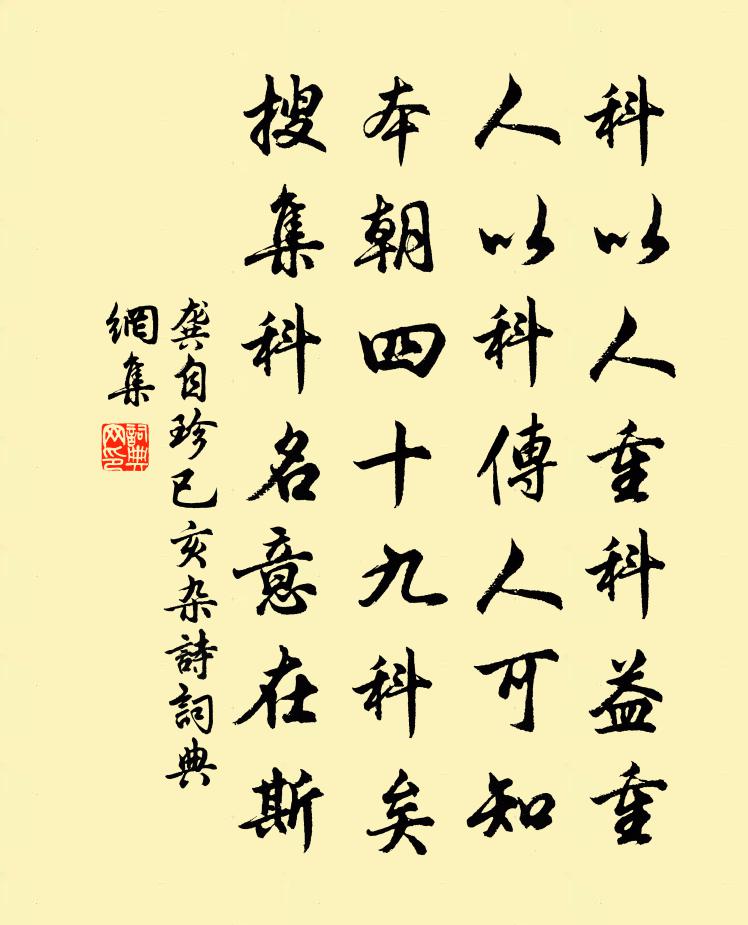 科以人重科益重
人以科傳人可知
本朝四十九科矣
搜集科名意在斯
龔自珍己亥杂詩詞典
網集
詞典網印